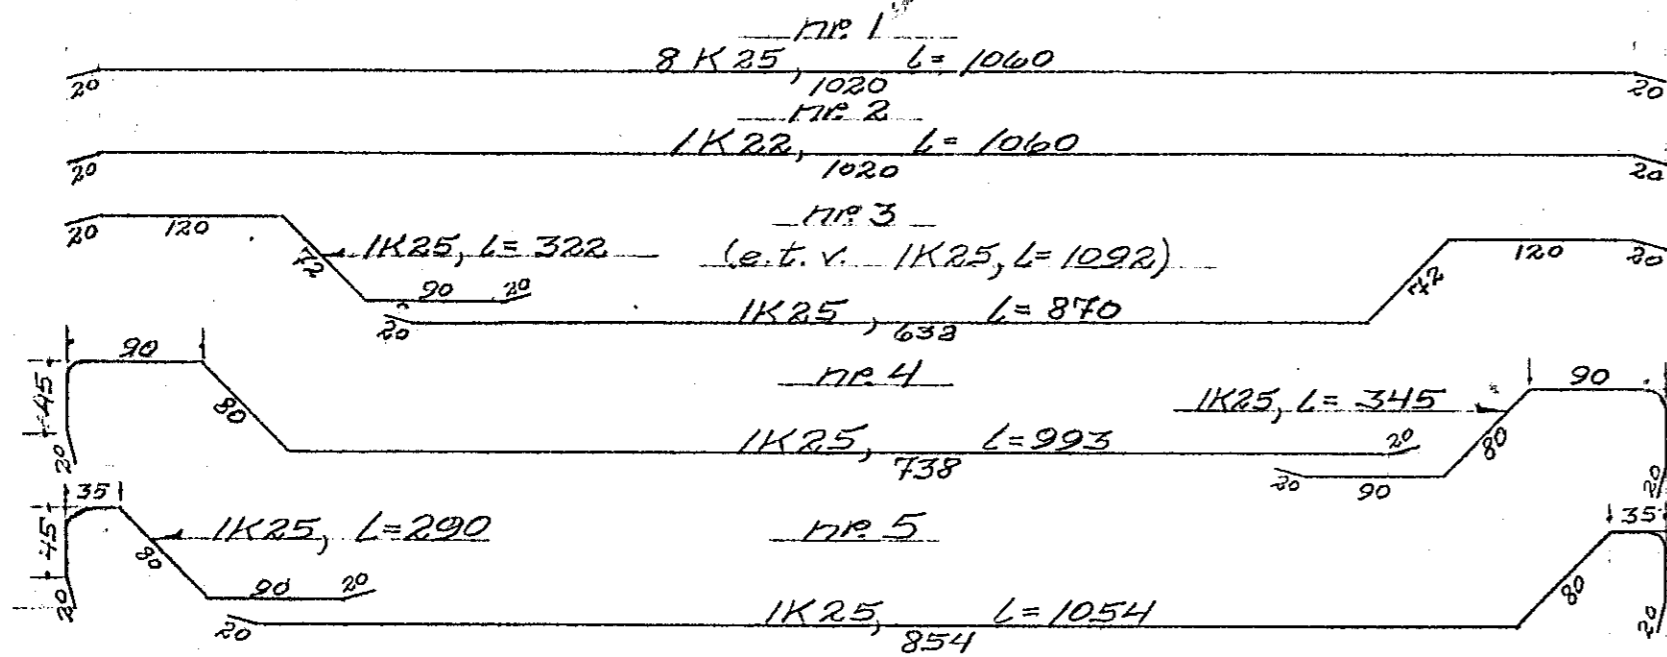 nr. 1
8 K 25, L= 1060
20 1020 20
nr. 2
1K22, L= 1060
20 1020 20
nr. 3
20 120 72 1K25, L= 322 (e.t.v. 1K25, L=1092) 72 120 20
90 20
20 1K25, L= 870
638
90 nr. 4 90
45 80 1K25, L= 345 80
20 1K25, L=993 20
738 20 90 20
35 1K25, L=290 nr. 5 35
45 80 80
20 90 20 20
20 1K25, L=1054
854